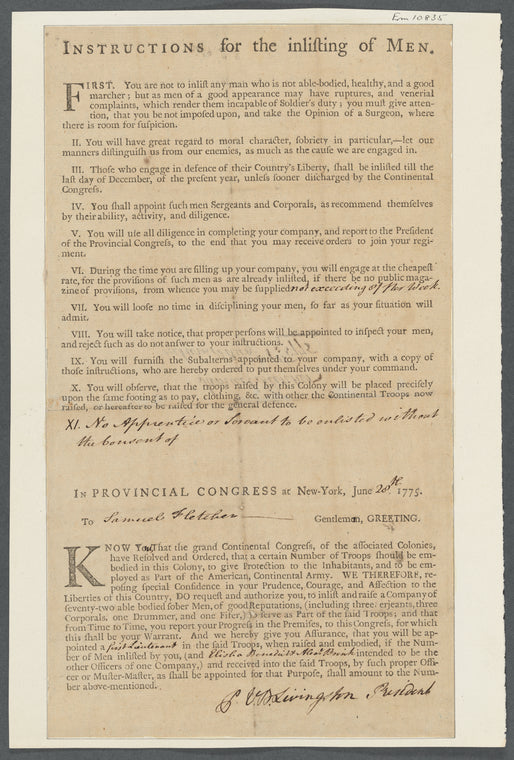 Em 10835
INSTRUCTIONS for the inlisting of MEN.
FIRST. You are not to inlist any man who is not able-bodied, healthy, and a good
marcher; but as men of a good appearance may have ruptures, and venerial
complaints, which render them incapable of Soldier's duty; you must give atten-
tion, that you be not imposed upon, and take the Opinion of a Surgeon, where
there is room for suspicion.
II. You will have great regard to moral character, sobriety in particular,—let our
manners distinguish us from our enemies, as much as the cause we are engaged in.
III. Those who engage in defence of their Country's Liberty, shall be inlisted till the
last day of December, of the present year, unless sooner discharged by the Continental
Congress.
IV. You shall appoint such men Sergeants and Corporals, as recommend themselves
by their ability, activity, and diligence.
V. You will use all diligence in completing your company, and report to the President
of the Provincial Congress, to the end that you may receive orders to join your regi-
ment.
VI. During the time you are filling up your company, you will engage at the cheapest
rate, for the provisions of such men as are already inlisted, if there be no public maga-
zine of provisions, from whence you may be supplied not exceeding 8/ Per Week.
VII. You will loose no time in disciplining your men, so far as your situation will
admit.
VIII. You will take notice, that proper persons will be appointed to inspect your men,
and reject such as do not answer to your instructions.
IX. You will furnish the Subalterns appointed to your company, with a copy of
those instructions, who are hereby ordered to put themselves under your command.
X. You will observe, that the troops raised by this Colony will be placed precisely
upon the same footing as to pay, clothing, &c. with other the Continental Troops now
raised, or hereafter to be raised for the general defence.
XI. No Apprentice or Servant to be enlisted without
the Consent of
IN PROVINCIAL CONGRESS at New-York, June 28th. 1775.
To Samuel Fletcher Gentleman, GREETING.
KNOW You That the grand Continental Congress, of the associated Colonies,
have Resolved and Ordered, that a certain Number of Troops should be em-
bodied in this Colony, to give Protection to the Inhabitants, and to be em-
ployed as Part of the American Continental Army. WE THEREFORE, re-
posing special Confidence in your Prudence, Courage, and Affection to the
Liberties of this Country, DO request and authorize you, to inlist and raise a Company of
seventy-two able bodied sober Men, of good Reputations, (including three Serjeants, three
Corporals, one Drummer, and one Fifer,) to serve as Part of the said Troops; and that
from Time to Time, you report your Progress in the Premises, to this Congress, for which
this shall be your Warrant. And we hereby give you Assurance, that you will be ap-
pointed a first Lieutenant in the said Troops, when raised and embodied, if the Num-
ber of Men inlisted by you, (and Elisha Benedict & intended to be the
other Officers of one Company,) and received into the said Troops, by such proper Offi-
cer or Muster-Master, as shall be appointed for that Purpose, shall amount to the Num-
ber above-mentioned.
P. V. B. Livingston President